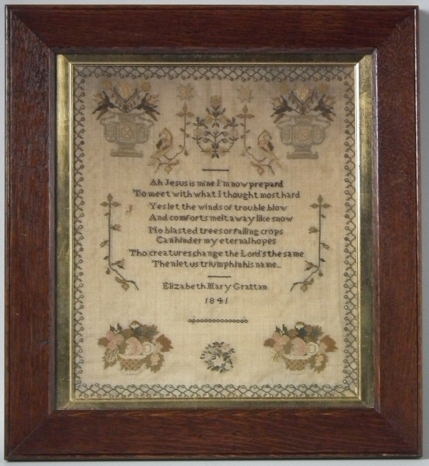 Ah Jesus is mine I'm now prepard
To meet with what I thought most hard
Yes let the winds of trouble blow
And comforts melt away like snow
No blasted trees or failing crops
Can hinder my eternal hopes
Tho creatures change the Lord's the same
Then let us triumph in his name
Elizabeth Mary Grattan
1841